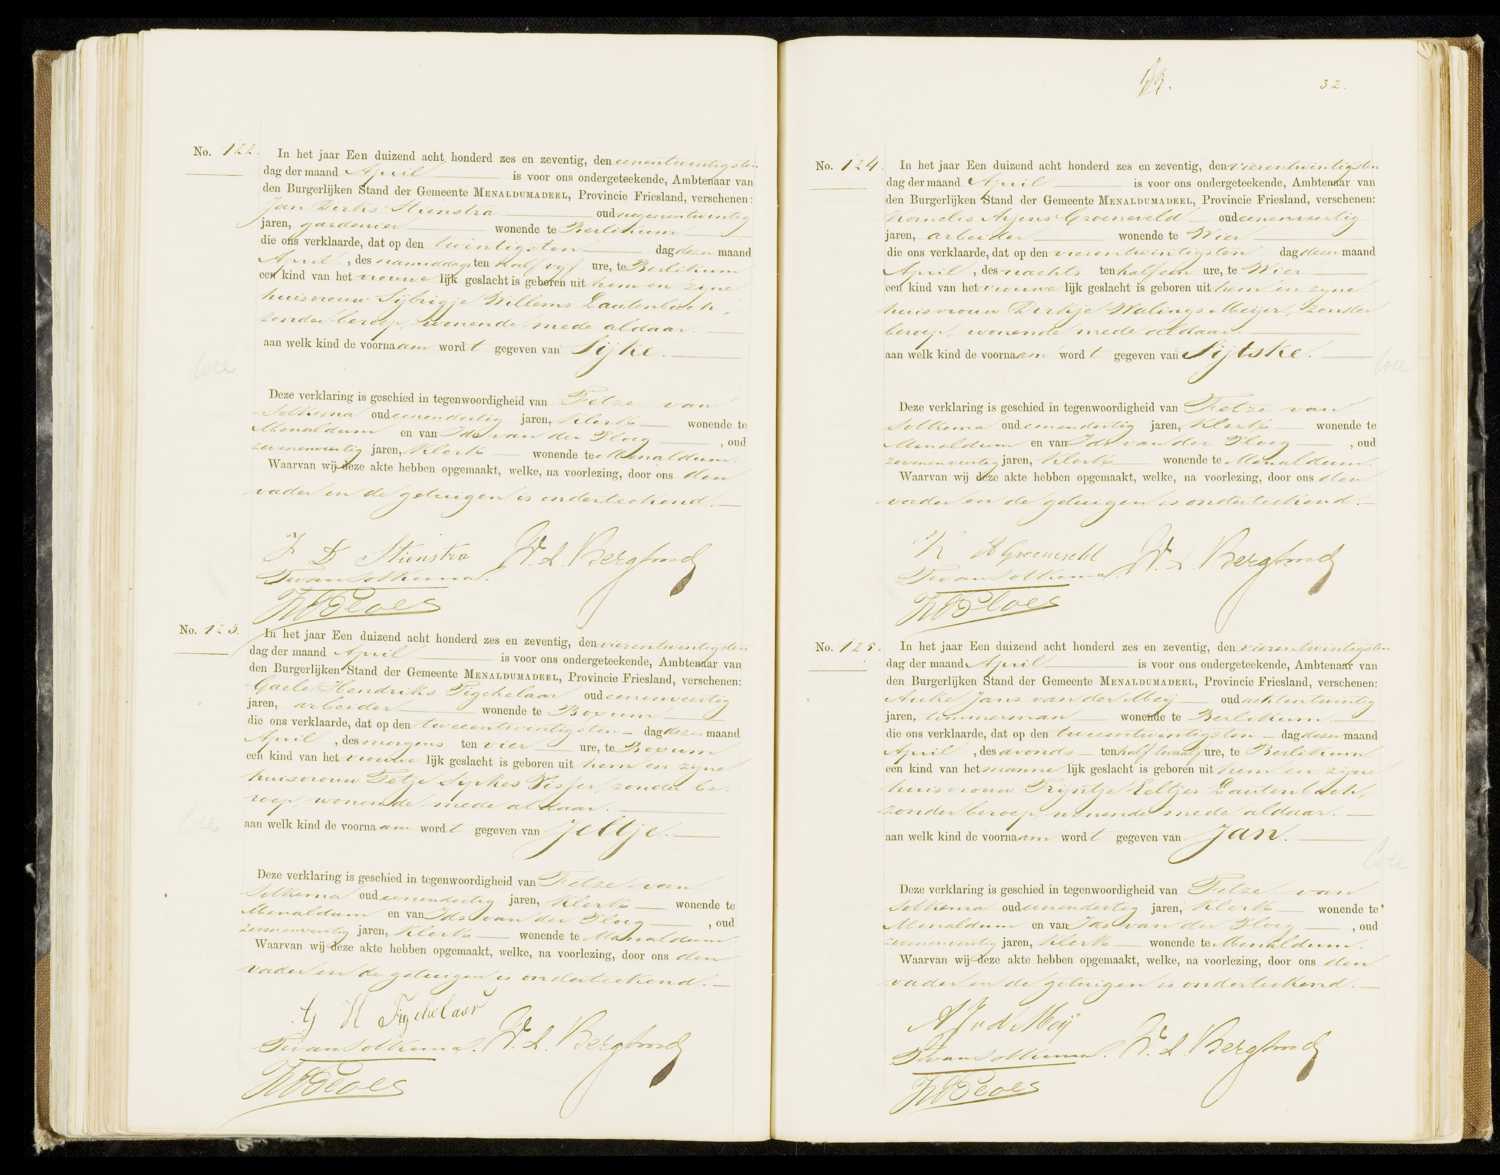 No. 122. In het jaar Een duizend acht honderd zes en zeventig, den eenentwintigsten
dag der maand April is voor ons ondergeteekende, Ambtenaar van
den Burgerlijken Stand der Gemeente MENALDUMADEEL, Provincie Friesland, verschenen:
Jan Dirks Stienstra oud negenentwintig
jaren, gardenier wonende te Berlikum
die ons verklaarde, dat op den twintigsten dag dezer maand
April, des namiddags ten half vyf ure, te Berlikum
een kind van het vrouwe lijk geslacht is geboren uit hem en zijne
huisvrouw Sijbrigje Willems Lautenbach,
zonder beroep, wonende mede aldaar.
aan welk kind de voornaam wordt gegeven van Sijke.
Deze verklaring is geschied in tegenwoordigheid van Fetze van
Solkema oud eenendertig jaren, Klerk wonende te
Menaldum en van Ids van der Ploeg, oud
zevenenveertig jaren, Klerk wonende te Menaldum.
Waarvan wij deze akte hebben opgemaakt, welke, na voorlezing, door ons den
vader en de getuigen is onderteekend.
J D Stienstra
F van Solkema.
No. 123. In het jaar Een duizend acht honderd zes en zeventig, den vierentwintigsten
dag der maand April is voor ons ondergeteekende, Ambtenaar van
den Burgerlijken Stand der Gemeente MENALDUMADEEL, Provincie Friesland, verschenen:
Gaele Hendriks Tigchelaar oud eenenveertig
jaren, arbeider wonende te Boxum
die ons verklaarde, dat op den tweeentwintigsten dag dezer maand
April, des morgens ten vier ure, te Boxum
een kind van het vrouwe lijk geslacht is geboren uit hem en zijne
huisvrouw Tetje Sipkes Visser, zonder be-
roep, wonende mede aldaar.
aan welk kind de voornaam wordt gegeven van Jeltje.
Deze verklaring is geschied in tegenwoordigheid van Fetze van
Solkema oud eenendertig jaren, Klerk wonende te
Menaldum en van Ids van der Ploeg, oud
zevenenveertig jaren, Klerk wonende te Menaldum
Waarvan wij deze akte hebben opgemaakt, welke, na voorlezing, door ons den
vader en de getuigen is onderteekend.
G H Tigchelaar
F van Solkema.
32.
No. 124. In het jaar Een duizend acht honderd zes en zeventig, den vierentwintigsten
dag der maand April is voor ons ondergeteekende, Ambtenaar van
den Burgerlijken Stand der Gemeente MENALDUMADEEL, Provincie Friesland, verschenen:
Kornelis Arjens Groeneveld oud eenenveertig
jaren, arbeider wonende te Wier
die ons verklaarde, dat op den vierentwintigsten dag dezer maand
April, des nachts ten half een ure, te Wier
een kind van het vrouwe lijk geslacht is geboren uit hem en zijne
huisvrouw Dirkje Walings Meijer, zonder
beroep, wonende mede aldaar.
aan welk kind de voornaam wordt gegeven van Sijtske.
Deze verklaring is geschied in tegenwoordigheid van Fetze van
Solkema oud eenendertig jaren, Klerk wonende te
Menaldum en van Ids van der Ploeg, oud
zevenenveertig jaren, Klerk wonende te Menaldum.
Waarvan wij deze akte hebben opgemaakt, welke, na voorlezing, door ons den
vader en de getuigen is onderteekend.
K A Groeneveld
F van Solkema.
No. 125. In het jaar Een duizend acht honderd zes en zeventig, den vierentwintigsten
dag der maand April is voor ons ondergeteekende, Ambtenaar van
den Burgerlijken Stand der Gemeente MENALDUMADEEL, Provincie Friesland, verschenen:
Auke Jans van der Mey oud achtentwintig
jaren, timmerman wonende te Berlikum
die ons verklaarde, dat op den tweeentwintigsten dag dezer maand
April, des avonds ten half twaalf ure, te Berlikum
een kind van het manne lijk geslacht is geboren uit hem en zijne
huisvrouw Trijntje Eeltjes Lautenbach,
zonder beroep, wonende mede aldaar.
aan welk kind de voornaam wordt gegeven van Jan.
Deze verklaring is geschied in tegenwoordigheid van Fetze van
Solkema oud eenendertig jaren, Klerk wonende te
Menaldum en van Ids van der Ploeg, oud
zevenenveertig jaren, Klerk wonende te Menaldum.
Waarvan wij deze akte hebben opgemaakt, welke, na voorlezing, door ons den
vader en de getuigen is onderteekend.
A J v d Meij
F van Solkema.